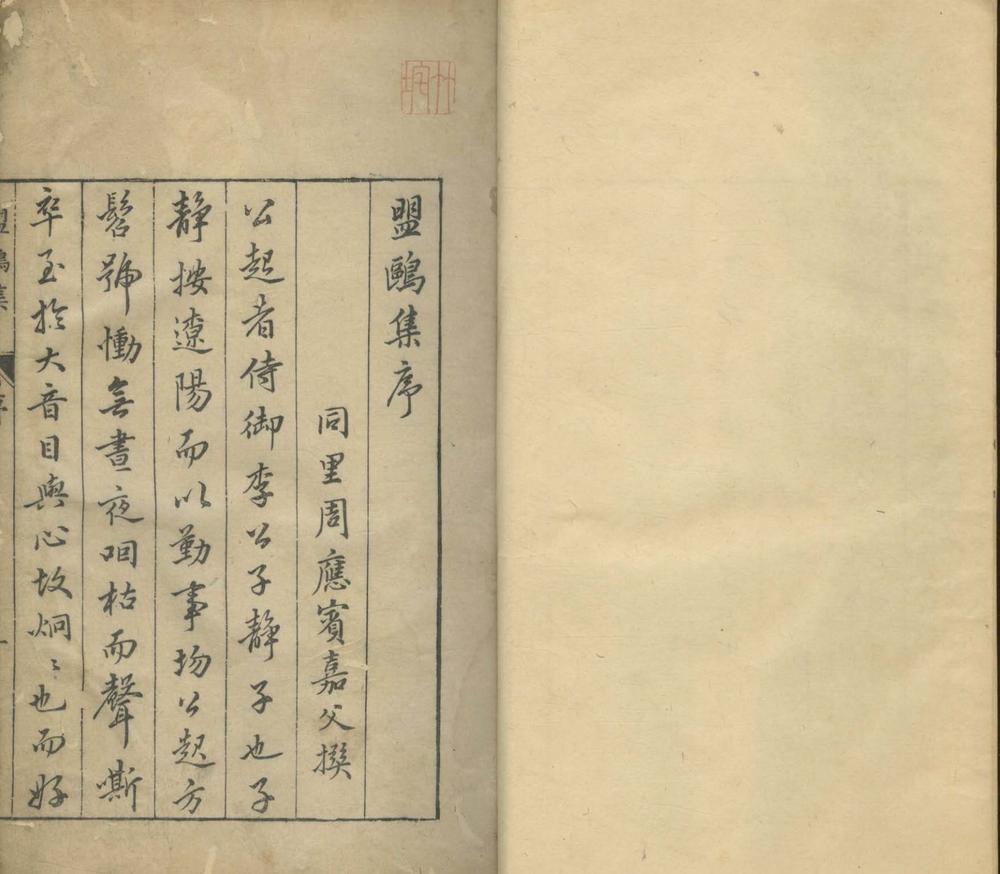 盟鷗集序
同里周應賓嘉父撰
公起者侍御李公子靜子也子
靜按遼陽而以勤事物公起方
髫號慟無晝夜咽枯而聲嘶
卒至於大音目與心故炯〻也而好
盟鷗集
序
一